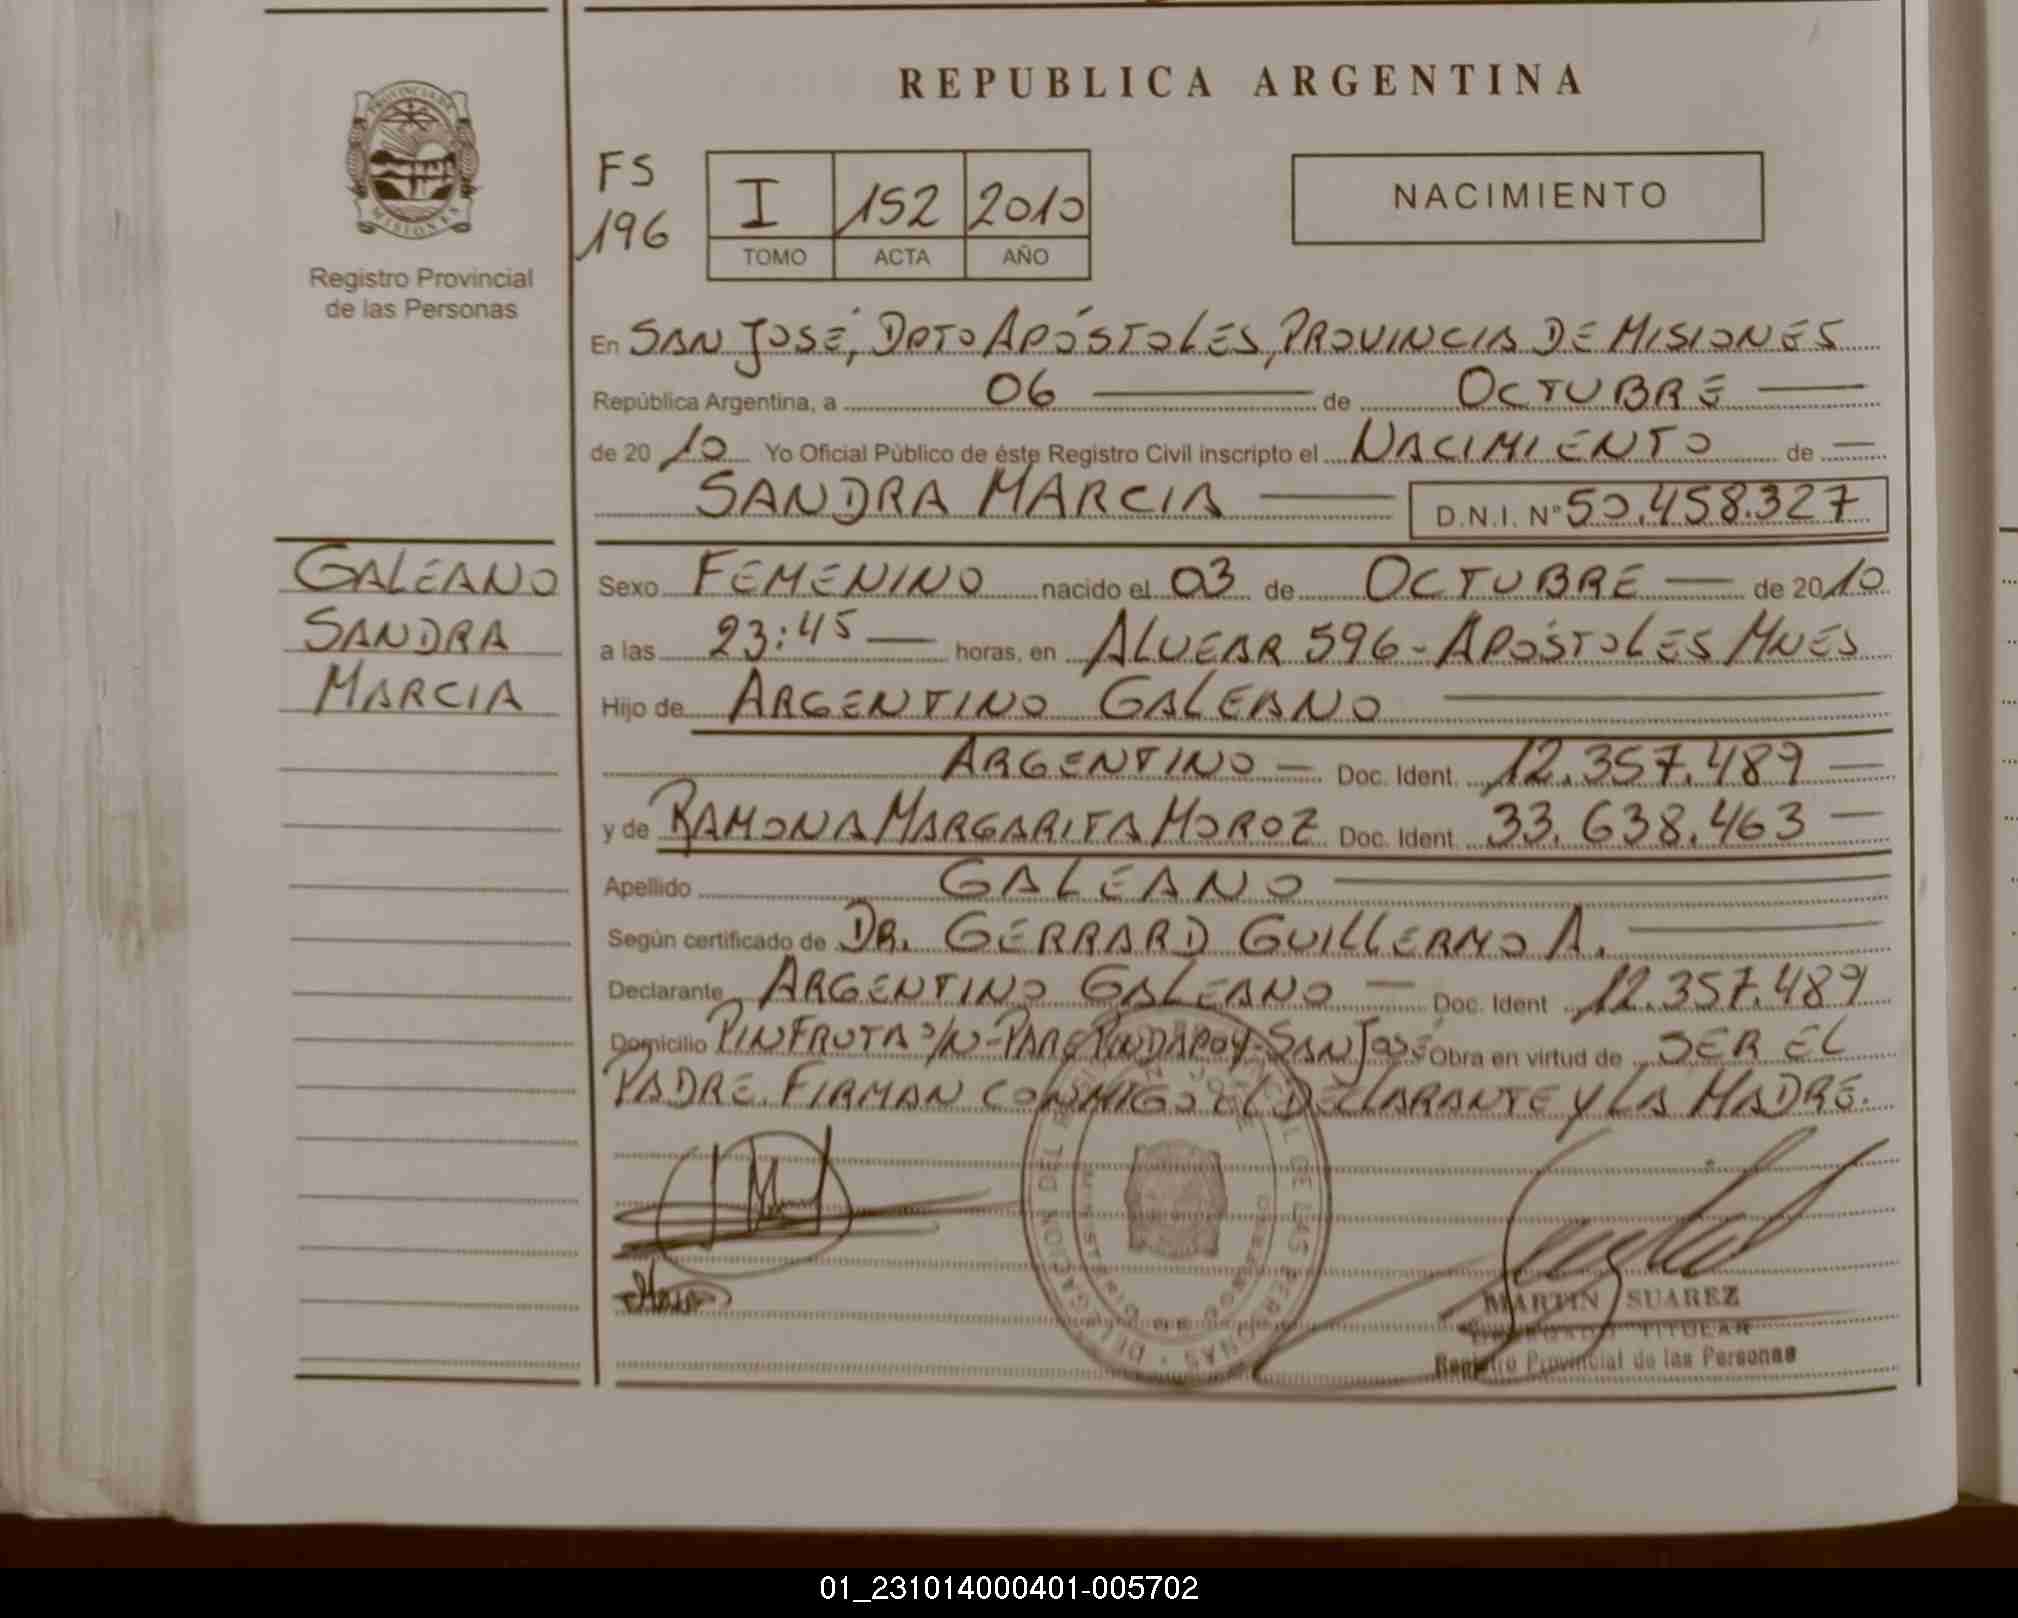 REPUBLICA ARGENTINA
PROVINCIA DE
MISIONES
Registro Provincial
de las Personas
FS
196
I 152 2010
TOMO ACTA AÑO
NACIMIENTO
En SAN JOSÉ, DPTO APÓSTOLES, PROVINCIA DE MISIONES
República Argentina, a 06 de OCTUBRE
de 20 10 Yo Oficial Público de éste Registro Civil inscripto el NACIMIENTO de
SANDRA MARCIA D.N.I. N° 50.458.327
GALEANO
SANDRA
MARCIA
Sexo FEMENINO nacido el 03 de OCTUBRE de 2010
a las 23:45 horas, en ALVEAR 596 - APÓSTOLES MNES
Hijo de ARGENTINO GALEANO
ARGENTINO Doc. Ident. 12.357.489
y de RAMONA MARGARITA MOROZ Doc. Ident. 33.638.463
Apellido GALEANO
Según certificado de DR. GERRARD GUILLERMO A.
Declarante ARGENTINO GALEANO Doc. Ident 12.357.489
Domicilio PINFRUTA S/N - PARE PINDAPOY - SAN JOSÉ Obra en virtud de SER EL
PADRE. FIRMAN CONMIGO EL DECLARANTE Y LA MADRE.
MARTIN SUAREZ
DELEGADO TITULAR
Registro Provincial de las Personas
01_231014000401-005702